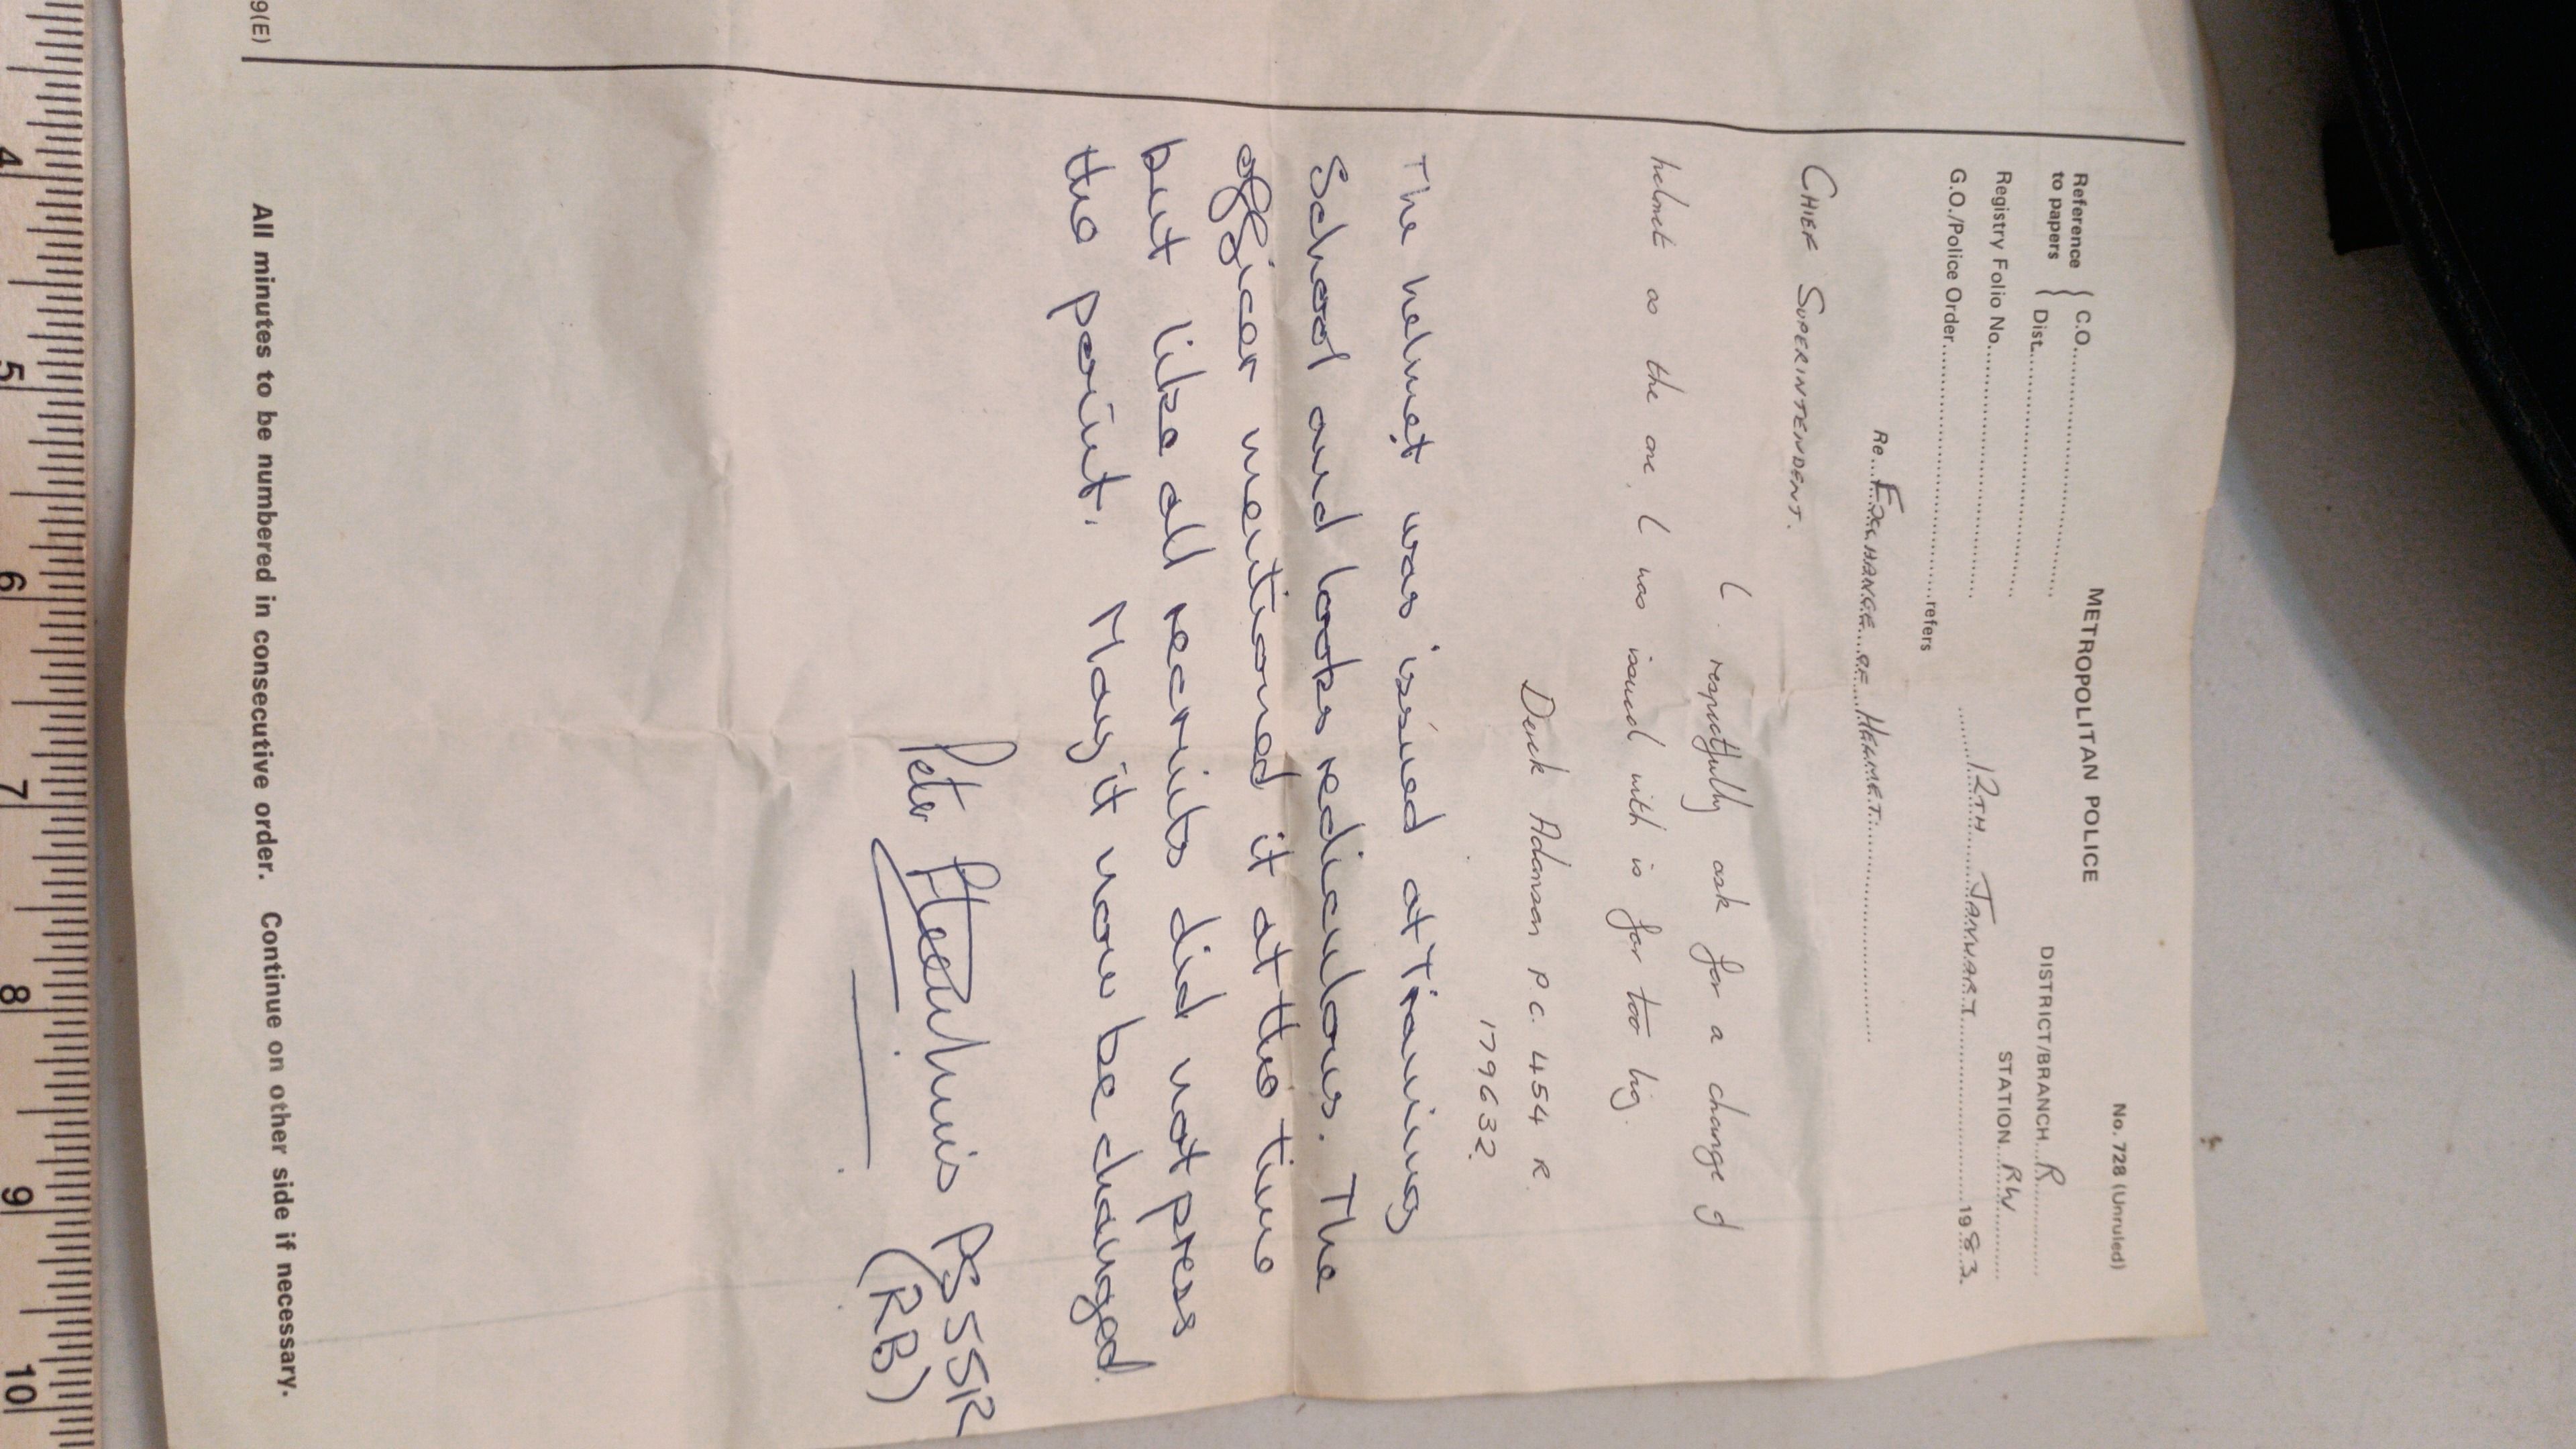 No. 728 (Unruled)
METROPOLITAN POLICE
Reference to papers { C.O.
{ Dist.
DISTRICT/BRANCH R
Registry Folio No.
STATION RW
G.O./Police Order refers
12TH JANUARY 1983.
Re EXCHANGE OF HELMET.
CHIEF SUPERINTENDENT.
I respectfully ask for a change of
helmet as the one I was issued with is far too big.
Derek Adamson P.C. 454 R.
179632.
The helmet was issued at Training
School and looks rediculous. The
officer mentioned it at the time
but like all recruits did not press
the point. May it now be changed.
Peter PS 55R
(RB)
9(E)
All minutes to be numbered in consecutive order. Continue on other side if necessary.
4 5 6 7 8 9 10